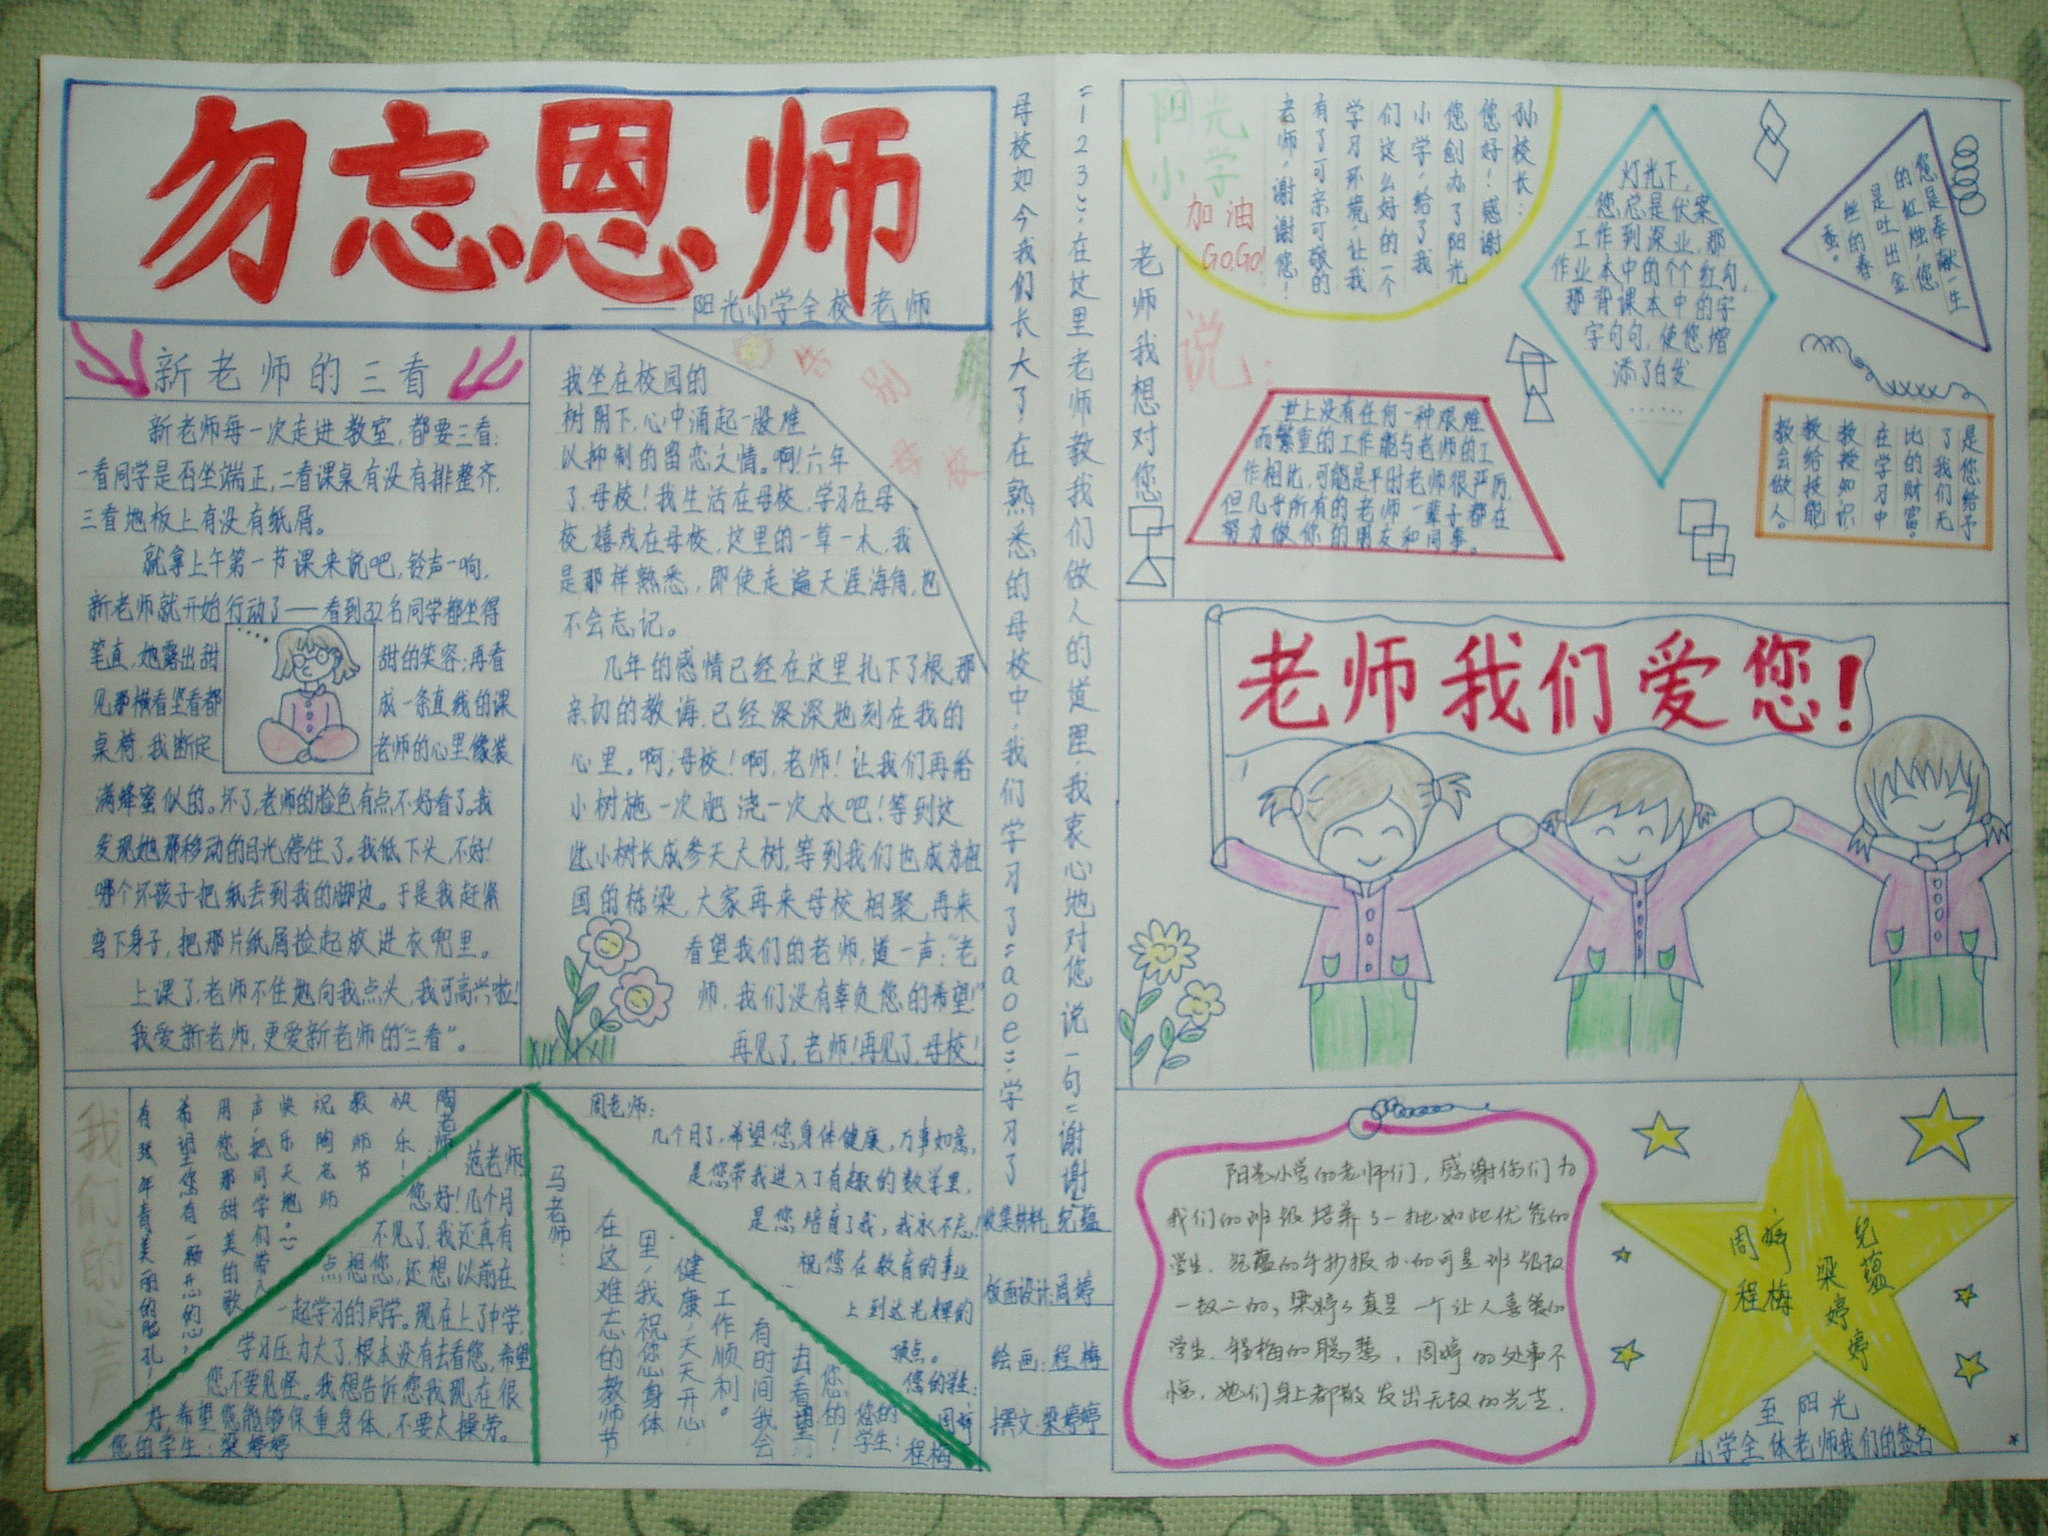 勿忘恩师
——阳光小学全校老师
新老师的三看
新老师每一次走进教室,都要三看:
一看同学是否坐端正,二看课桌有没有排整齐,
三看地板上有没有纸屑。
就拿上午第一节课来说吧,铃声一响,
新老师就开始行动了——看到32名同学都坐得
笔直,她露出甜甜的笑容;再看
见那横看竖看都成一条直线的课
桌椅,我断定老师的心里像装
满蜂蜜似的。坏了,老师的脸色有点不好看了。我
发现她那移动的目光停住了。我低下头,不好!
哪个坏孩子把纸丢到我的脚边。于是我赶紧
弯下身子,把那片纸屑捡起放进衣兜里。
上课了,老师不住地向我点头,我可高兴啦!
我爱新老师,更爱新老师的“三看”。
我坐在校园的
树阴下,心中涌起一股难
以抑制的留恋之情。啊!六年
了,母校!我生活在母校,学习在母
校,嬉戏在母校,这里的一草一木,我
是那样熟悉,即使走遍天涯海角,也
不会忘记。
几年的感情已经在这里扎下了根,那
亲切的教诲,已经深深地刻在我的
心里。啊,母校!啊,老师!让我们再给
小树施一次肥,浇一次水吧!等到这
些小树长成参天大树,等到我们也成为祖
国的栋梁,大家再来母校相聚,再来
看望我们的老师,道一声:“老
师,我们没有辜负您的希望!”
再见了,老师!再见了,母校!
我们的心声
陶老师
教师节快乐!
祝陶老师
快乐天天
声,把同学们带入
用您那甜美的歌
希望您有一颗开心的心,
有张年青美丽的脸孔!
范老师
您好!几个月
不见了,我还真有
点想您,还想以前在
一起学习的同学。现在上了中学,
学习压力大了,根本没有去看您,希望
您不要见怪。我想告诉您我现在很
好,希望您能够保重身体,不要太操劳。
您的学生:梁婷婷
马老师:
在这难忘的教师节
里,我祝您身体
健康,天天开心,
工作顺利。
有时间我会
去看望
您的!
您的学生:
程梅
周老师:
几个月了,希望您身体健康,万事如意,
是您带我进入了有趣的数学里,
是您培育了我,我永不忘!
祝您在教育的事业
上到达光辉的
顶点。
您的学生:
周婷
母校如今我们长大了,在熟悉的母校中,我们学习了=aoe=学习了
=123=,在这里老师教我们做人的道理,我衷心地对您说一句=谢谢=
收集材料:倪蕴
版面设计:周婷
绘画:程梅
撰文:梁婷婷
阳光
小学
加油
GO,GO!
孙校长:
您好!感谢
您创办了阳光
小学,给了我
们这么好的一个
学习环境,让我
有了可亲可敬的
老师,谢谢您!
老师我想对您
说:
灯光下,
您总是伏案
工作到深业,那
作业本中的个个红勾,
那背课本中的字
字句句,使您增
添了白发
……
您是奉献一生
的红烛,您
是吐出金
丝的春
蚕。
世上没有任何一种艰难
而繁重的工作能与老师的工
作相比,可能是平时老师很严厉,
但几乎所有的老师一辈子都在
努力做你的朋友和同事。
是您给予
了我们无
比的财富,
在学习中
教授知识
教给技能
教会做人。
老师我们爱您!
阳光小学的老师们,感谢你们为
我们的班级培养了一批如此优秀的
学生,倪蕴的手抄报办的可是班级数
一数二的,梁婷婷真是一个让人喜爱的
学生,程梅的聪慧,周婷的处事不
惊,她们身上都散发出无数的光芒。
周婷
程梅
倪蕴
梁婷婷
至阳光
小学全体老师我们的签名